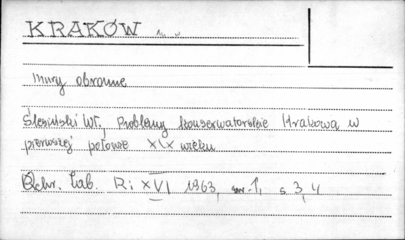 KRAKÓW
mury obronne
Ślesiński Wł., Problemy konserwatorskie Krakowa w
pierwszej połowie XIX wieku
Ochr. Zab. R: XVI 1963, nr. 1, s 3, 4